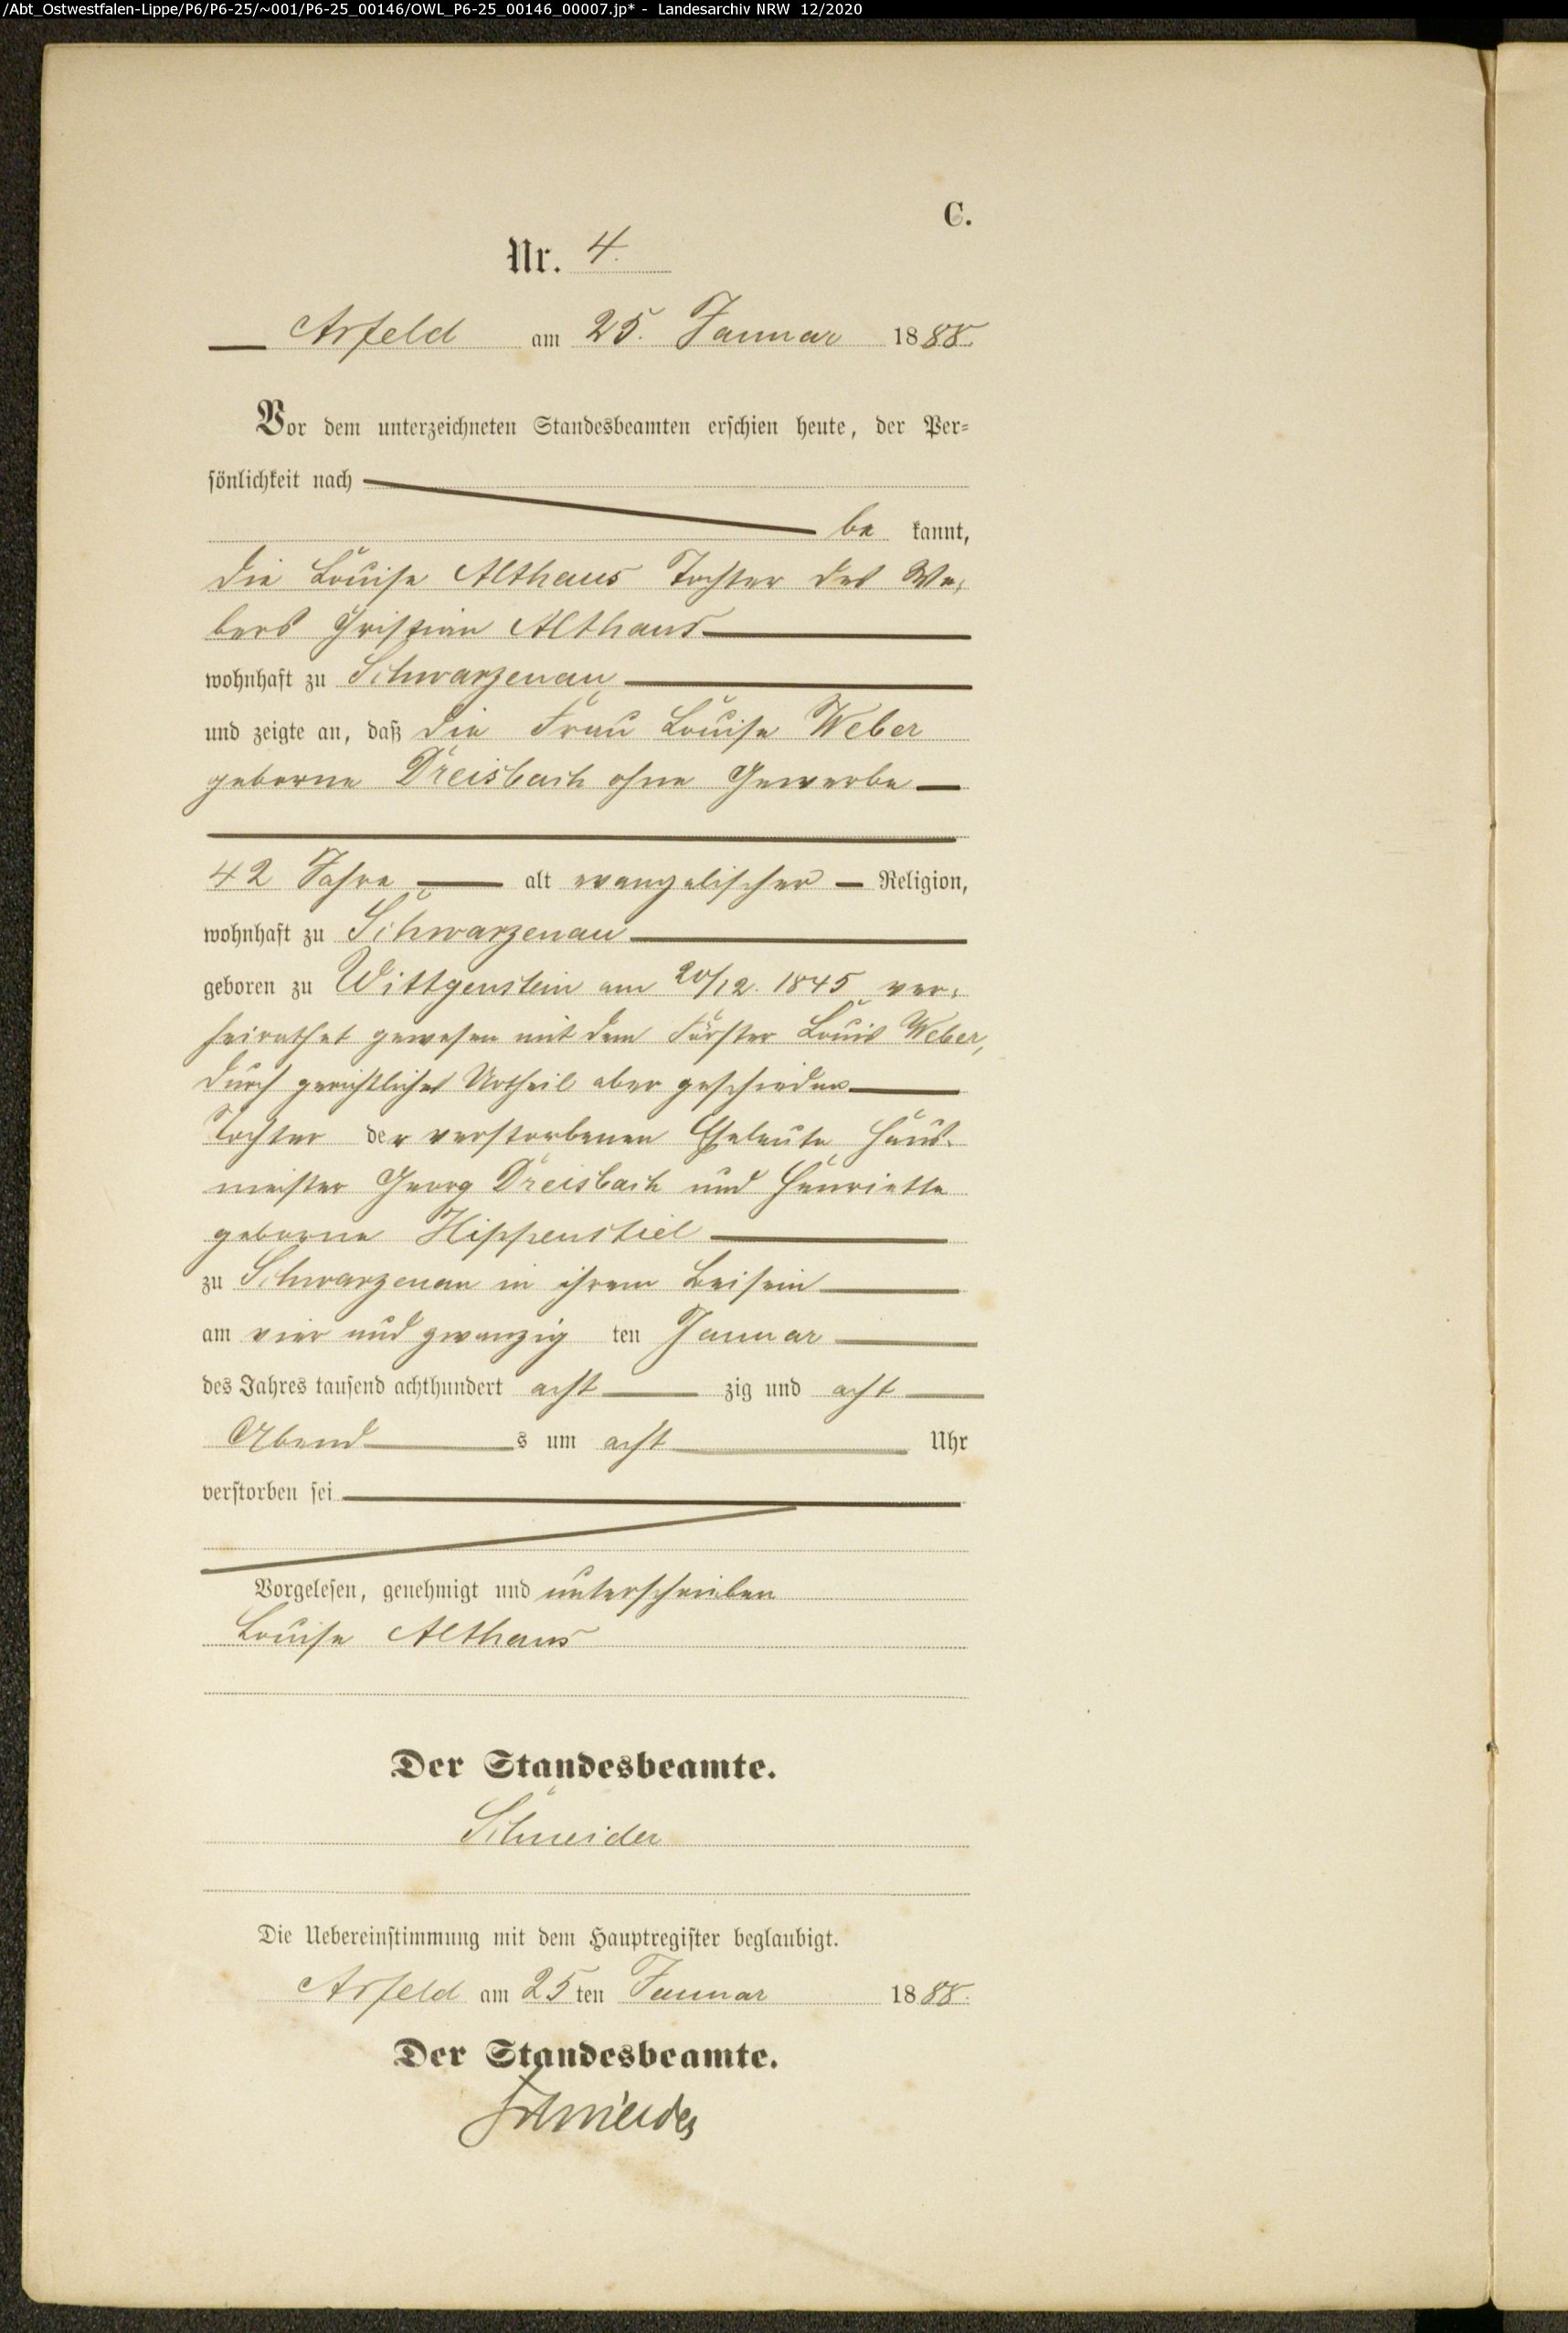 /Abt_Ostwestfalen-Lippe/P6/P6-25/~001/P6-25_00146/OWL_P6-25_00146_00007.jp* - Landesarchiv NRW 12/2020
C.
Nr. 4.
Arfeld am 25. Januar 1888.
Vor dem unterzeichneten Standesbeamten erschien heute, der Per-
sönlichkeit nach
be kannt,
die Louise Althaus Tochter des We-
bers Christian Althaus
wohnhaft zu Schwarzenau
und zeigte an, daß die Frau Louise Weber
geborne Dreisbach ohne Gewerbe
42 Jahre alt evangelischer Religion,
wohnhaft zu Schwarzenau
geboren zu Wittgenstein am 20/12. 1845 ver-
heirathet gewesen mit dem Förster Louis Weber,
durch gerichtliches Urtheil aber geschieden
Tochter der verstorbenen Eheleute Haus-
meister Georg Dreisbach und Henriette
geborne Hippenstiel
zu Schwarzenau in ihrem Beisein
am vier und zwanzig ten Januar
des Jahres tausend achthundert acht zig und acht
Abend s um acht Uhr
verstorben sei
Vorgelesen, genehmigt und unterschrieben
Louise Althaus
Der Standesbeamte.
Schneider
Die Uebereinstimmung mit dem Hauptregister beglaubigt.
Arfeld am 25 ten Januar 1888.
Der Standesbeamte.
Schneider